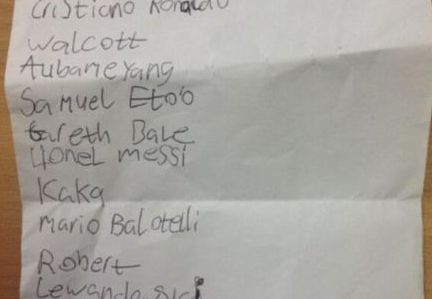 Cristiano Ronaldo
Walcott
Aubameyang
Samuel Eto'o
Gareth Bale
Lionel messi
Kaka
Mario Balotelli
Robert
Lewandoski